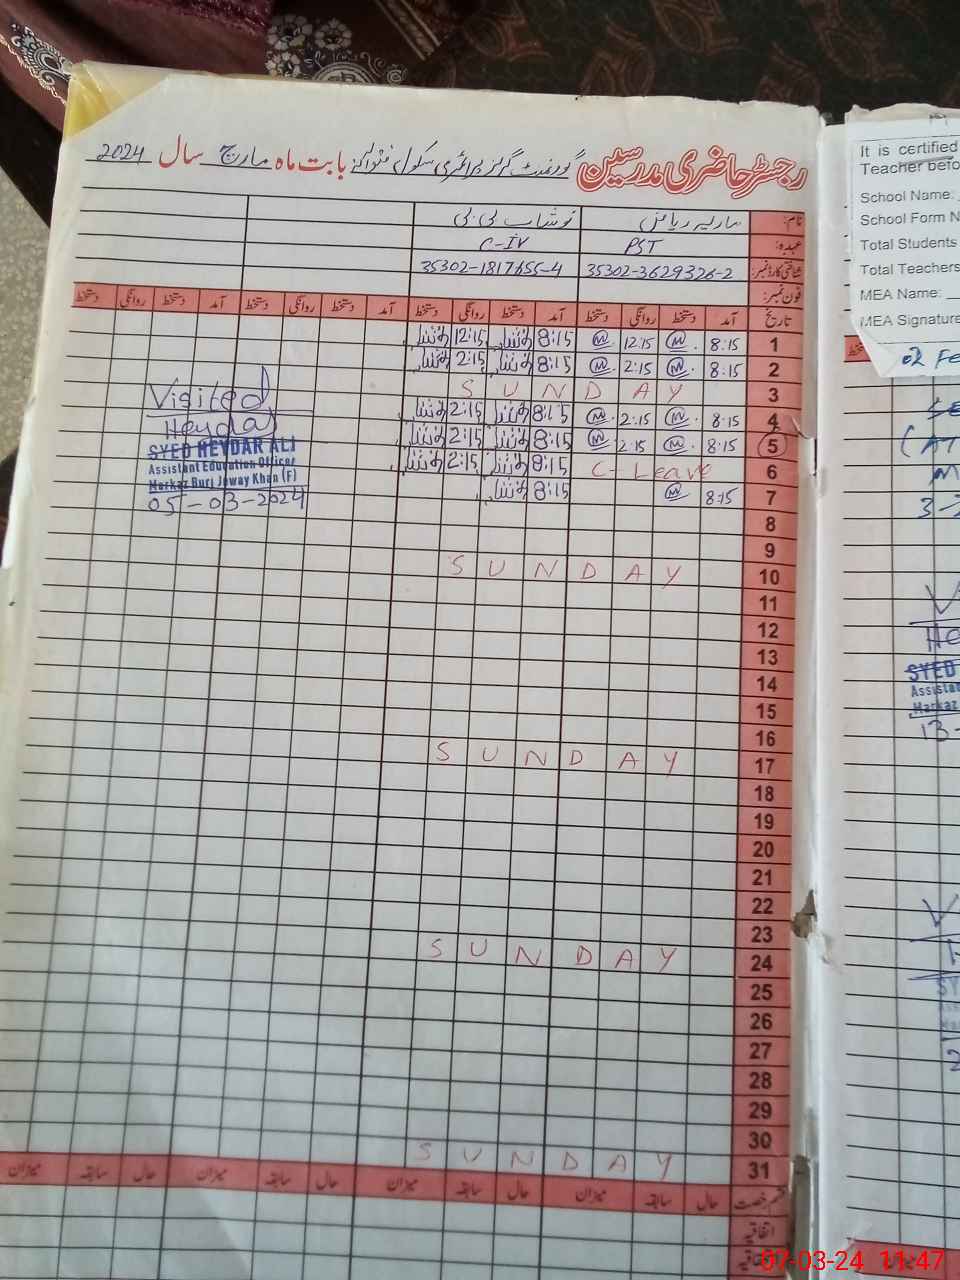 رجسٹر حاضری مدرسین گورنمنٹ گرلز پرائمری سکول بابت ماہ مارچ سال 2024
نام: ماریہ ریاض نوشاب بی بی
عہدہ: PST C-IV
شناختی کارڈ نمبر: 35302-3629326-2 35302-1817655-4
فون نمبر:
تاریخ آمد دستخط روانگی دستخط آمد دستخط روانگی دستخط آمد دستخط روانگی دستخط آمد دستخط روانگی دستخط
1 8:15 12:15 8:15 12:15
2 8:15 2:15 8:15 2:15
3 SUNDAY
4 8:15 2:15 8:15 2:15
5 8:15 2:15 8:15 2:15
6 C-Leave 8:15 2:15
7 8:15 8:15
8
9
10 SUNDAY
11
12
13
14
15
16
17 SUNDAY
18
19
20
21
22
23
24 SUNDAY
25
26
27
28
29
30
31 SUNDAY
قسم رخصت حال سابقہ میزان حال سابقہ میزان حال سابقہ میزان حال سابقہ میزان
اتفاقیہ
Visited
Heydar
SYED HEYDAR ALI
Assistant Education Officer
Markaz Burj Jeway Khan (F)
05-03-2024
It is certified
Teacher befo
School Name:
School Form N
Total Students
Total Teachers
MEA Name:
MEA Signature
02 Fe
SYED
Assista
Markaz
13-
07-03-24 11:47